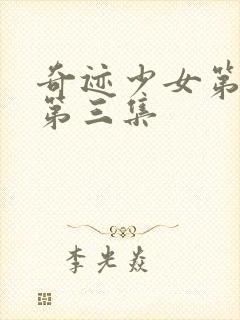 奇迹少女第
第三集
李光焱